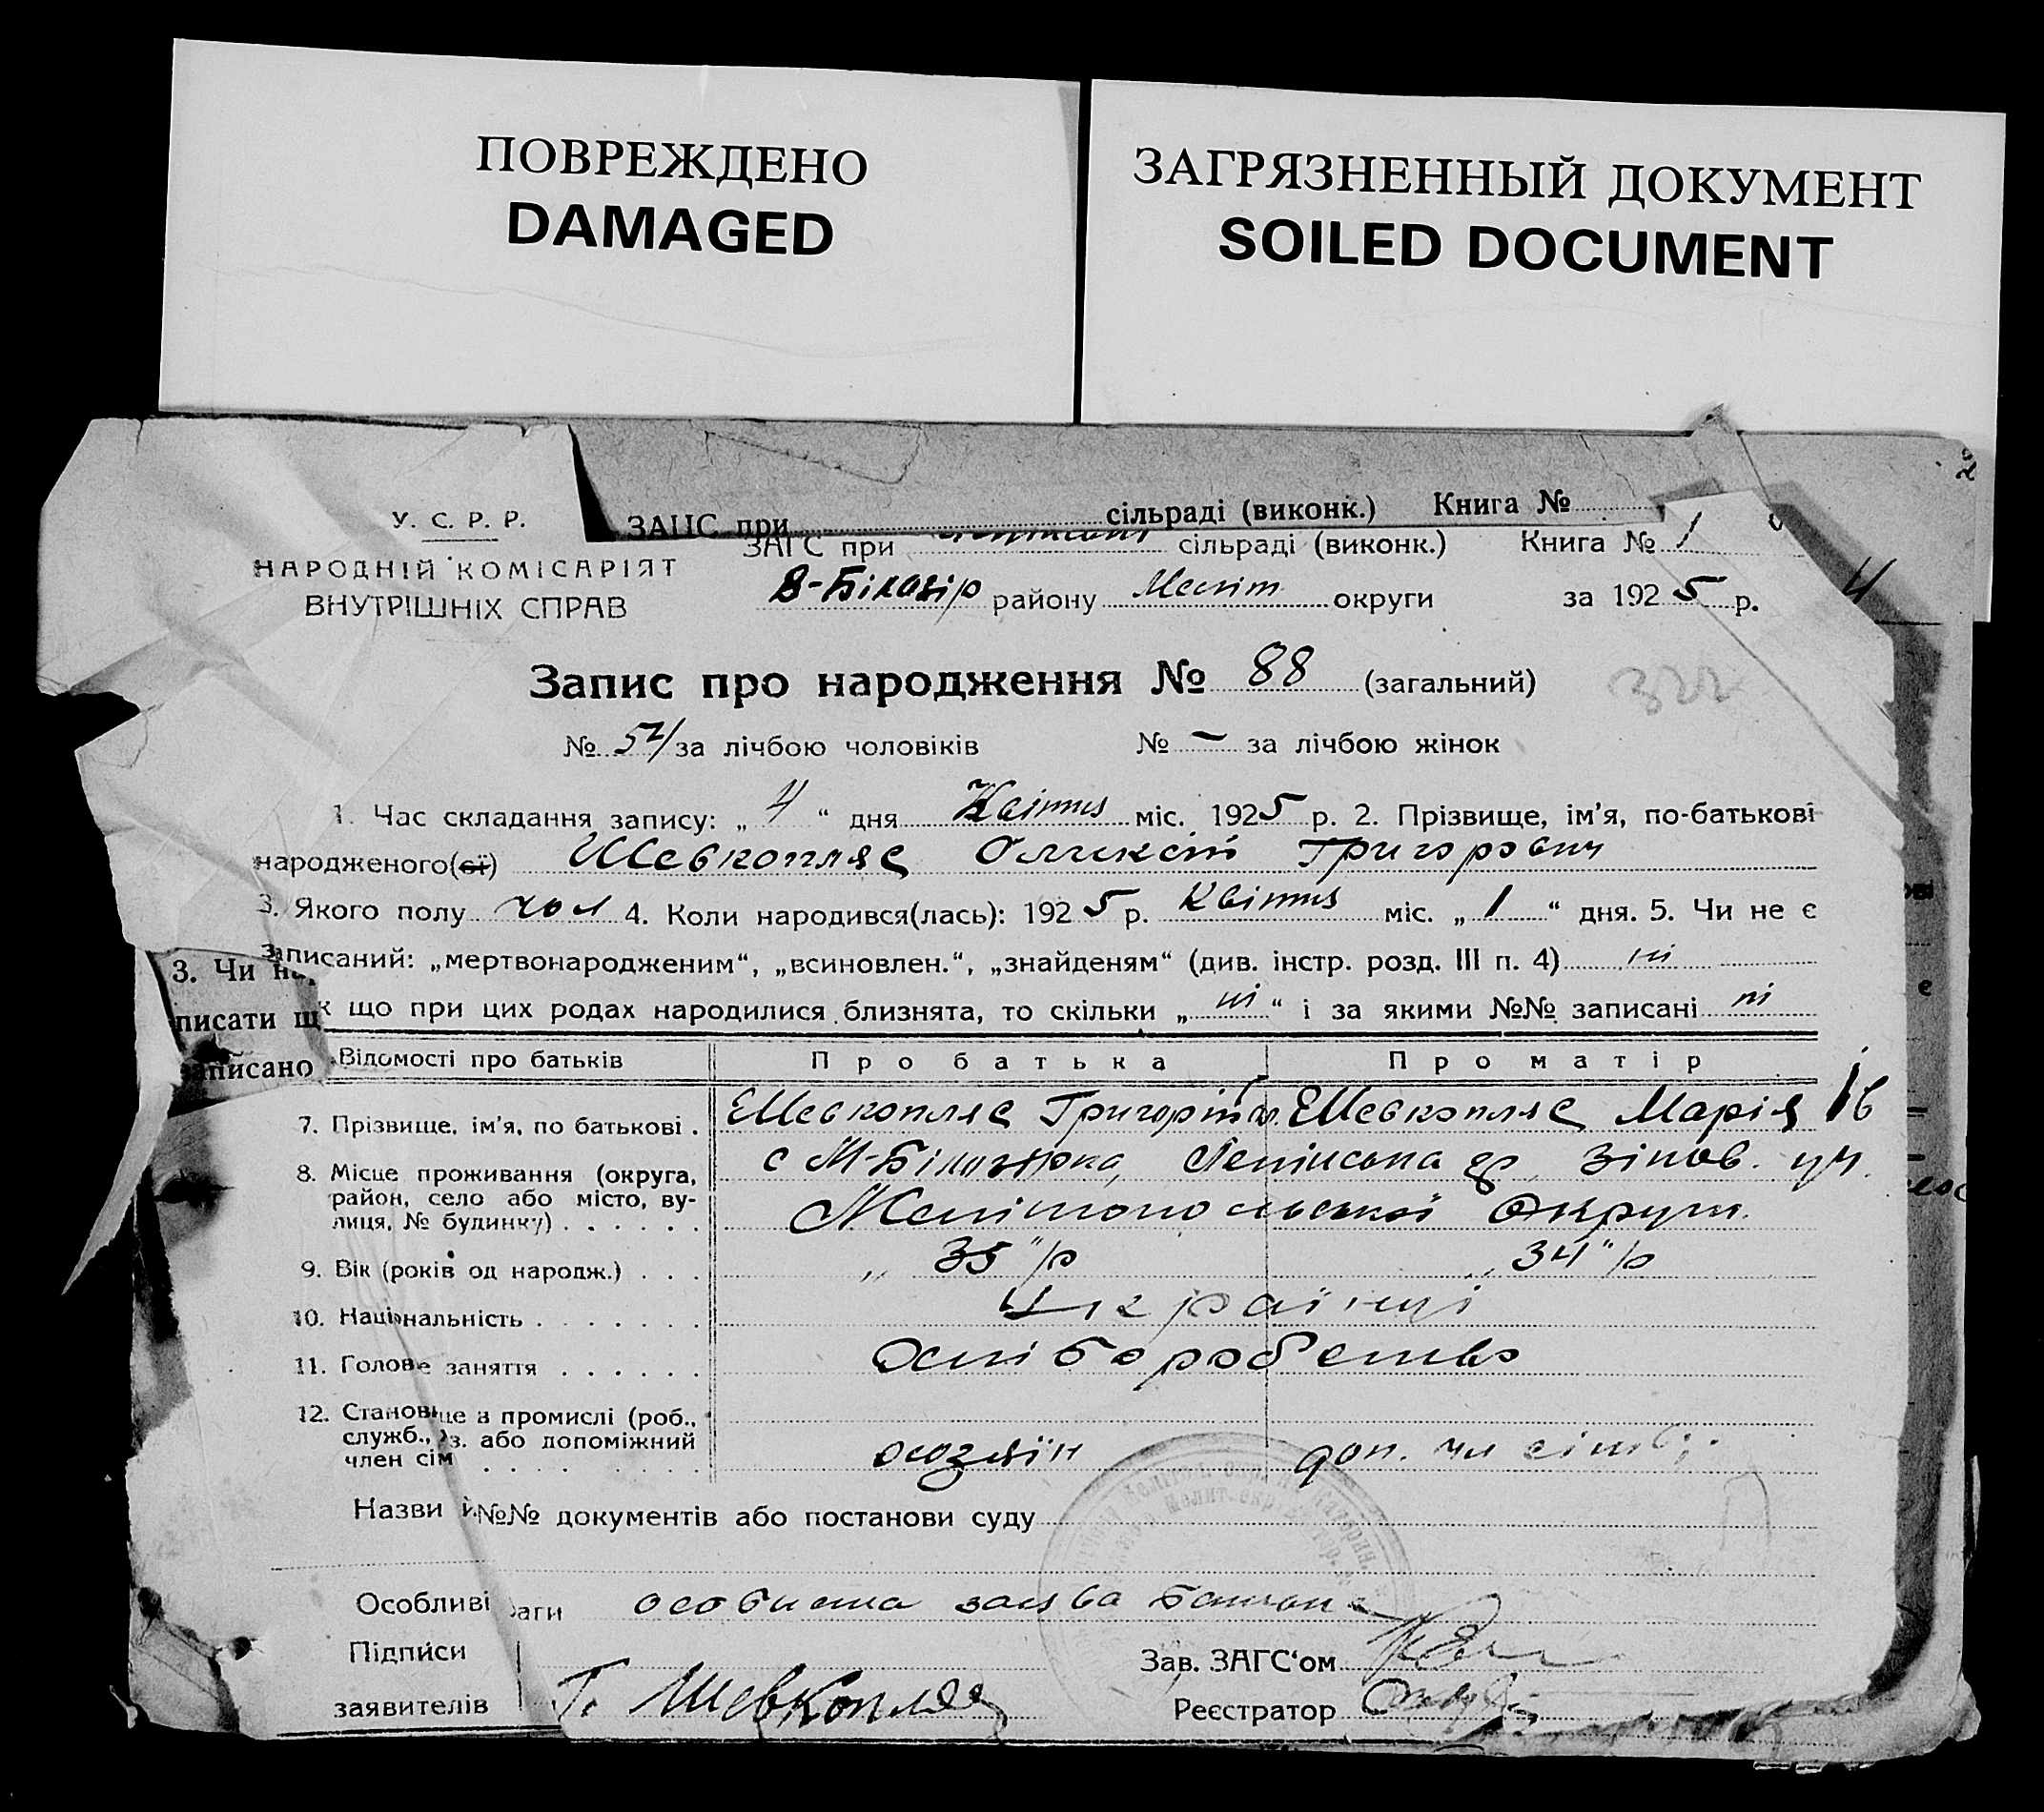 ПОВРЕЖДЕНО
DAMAGED
ЗАГРЯЗНЕННЫЙ ДОКУМЕНТ
SOILED DOCUMENT
2
ЗАПС при сільраді (виконк.) Книга №
У. С. Р. Р.
ЗАГС при сільраді (виконк.) Книга № 1
НАРОДНІЙ КОМІСАРІЯТ
ВНУТРІШНІХ СПРАВ
В-Білозір району Меліт округи за 1925 р.
4
Запис про народження № 88 (загальний)
322
№ 54 за лічбою чоловіків № – за лічбою жінок
1. Час складання запису: „ 4 “ дня Квітня міс. 1925 р. 2. Прізвище, ім'я, по-батькові
народженого(ої) Шевкопляс Олексій Григорович
3. Якого полу чол 4. Коли народився(лась): 1925 р. Квітня міс. „ 1 “ дня. 5. Чи не є
записаний: „мертвонародженим“, „всиновлен.“, „знайденям“ (див. інстр. розд. III п. 4) ні
3. Чи на
к що при цих родах народилися близнята, то скільки „ ні “ і за якими №№ записані ні
писати щ
записано
Відомості про батьків Про батька Про матір
7. Прізвище, ім'я, по батькові . Шевкопляс Григорій Шевкопляс Марія Ів
8. Місце проживання (округа, с М-Білозірка,
район, село або місто, ву-
лиця, № будинку) . . . . . . Мелітопольської Округи
9. Вік (років од народж.) . . . „ 35 "/р „ 34 "/р
10. Національність . . . . . . . Українці
11. Голове заняття . . . . . . Хліборобство
12. Становище в промислі (роб.,
служб., аз. або допоміжний
член сім . . . . . . хозяїн доп. чл сімьї
Назви й №№ документів або постанови суду
Особливі ваги особиста заява батька
Підписи Зав. ЗАГС‘ом
заявителів Г. Шевкопляс Реєстратор